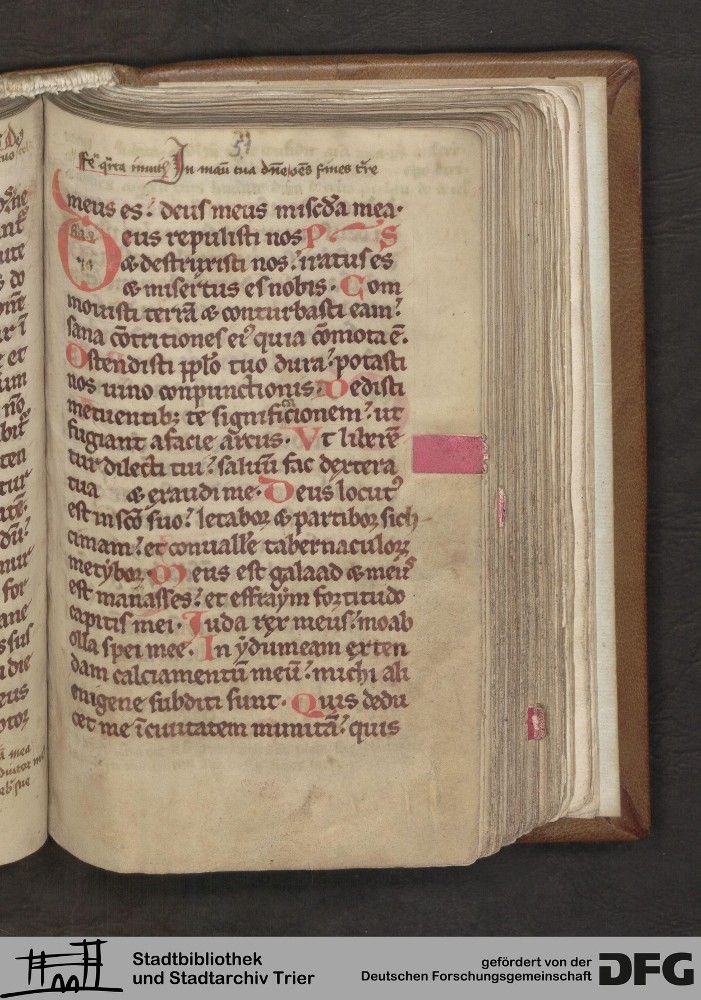 51
Feͣ qͥrta inuitͣ In manu tua dn̄e om̄s fines tr̄e
meus es: deus meus miscd̄a mea.
Deus repulisti nos PS
& destruxisti nos: iratus es
& misertus es nobis. Com
mouisti terrā & conturbasti eam:
sana cōtritiones ei⁹ quia cōmota ē.
Ostendisti pp̄lo tuo dura: potasti
nos uino conpunctionis. Dedisti
metuentib; te significationem: ut
fugiant a facie arcus. Vt liberē
tur dilecti tui: saluū fac dextera
tua & exaudi me. Deus locut⁹
est in sc̄o suo: letaboꝝ & partiboꝝ sich
cimam: et conuallē tabernaculoꝝ
metyboꝝ. Meus est galaad & meus
est manasses: et effraym fortitudo
capitis mei. Iuda rex meus: moab
olla spei mee. In ydumeam exten
dam calciamentū meū: michi ali
enigene subditi sunt. Quis dedu
cet me ī ciuitatem munitā: quis
Stadtbibliothek
und Stadtarchiv Trier
gefördert von der
Deutschen Forschungsgemeinschaft
DFG